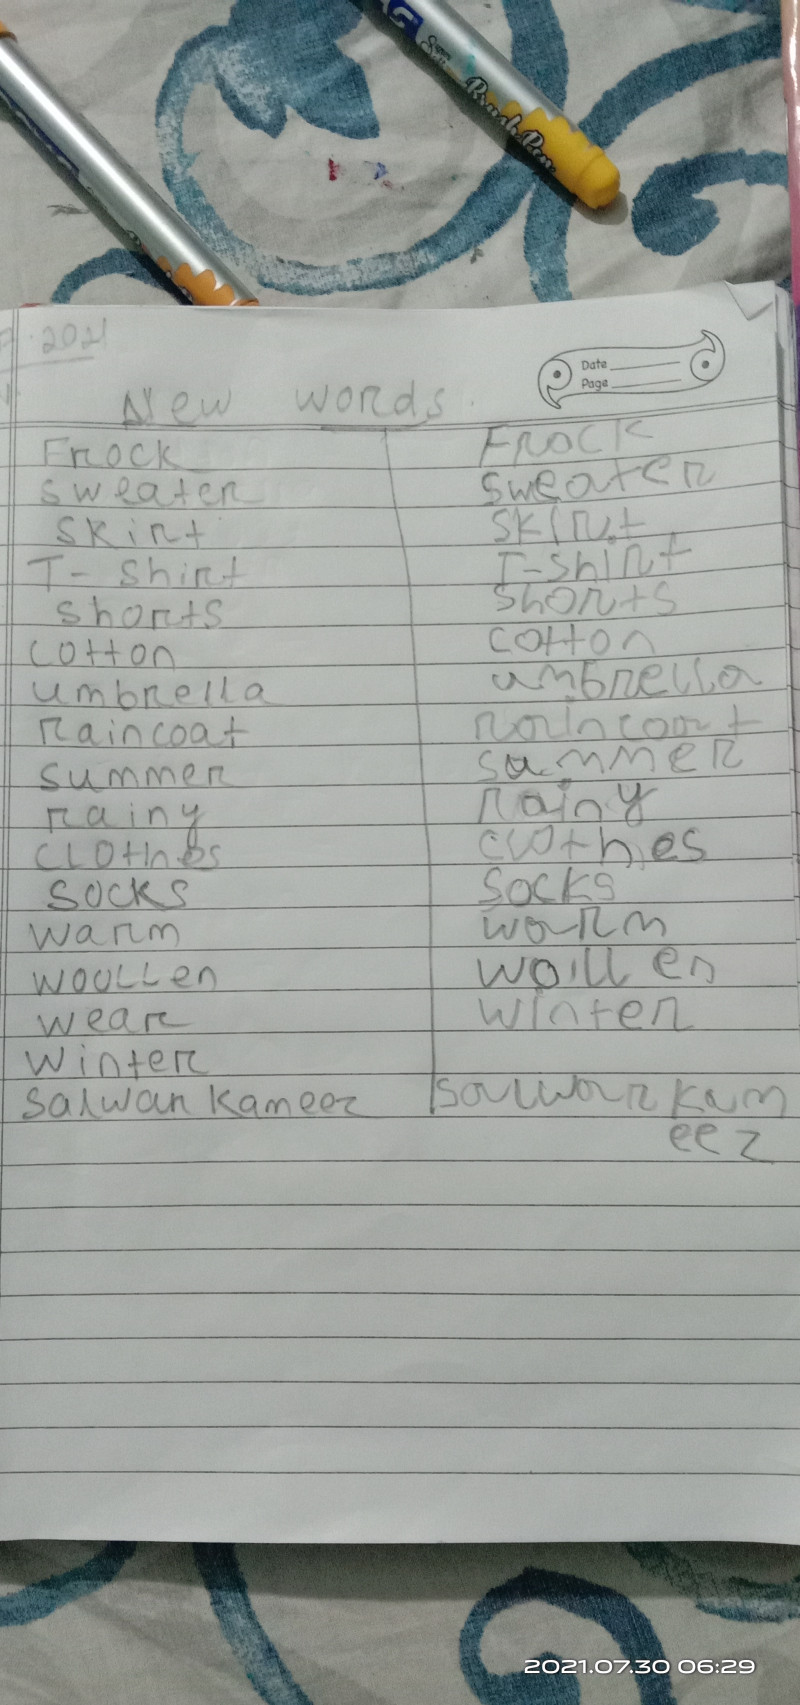 Super
Brush Pen
2021
Date
Page
New words.
Frock Frock
sweater sweater
skirt skirt
T- shirt T-shirt
shorts shorts
cotton cotton
umbrella umbrella
raincoat raincoat
summer summer
rainy rainy
CLOthes clothes
socks socks
warm warm
WOOLLen woillen
wear winter
winter
Salwar Kameez Salwar kam
eez
2021.07.30 06:29